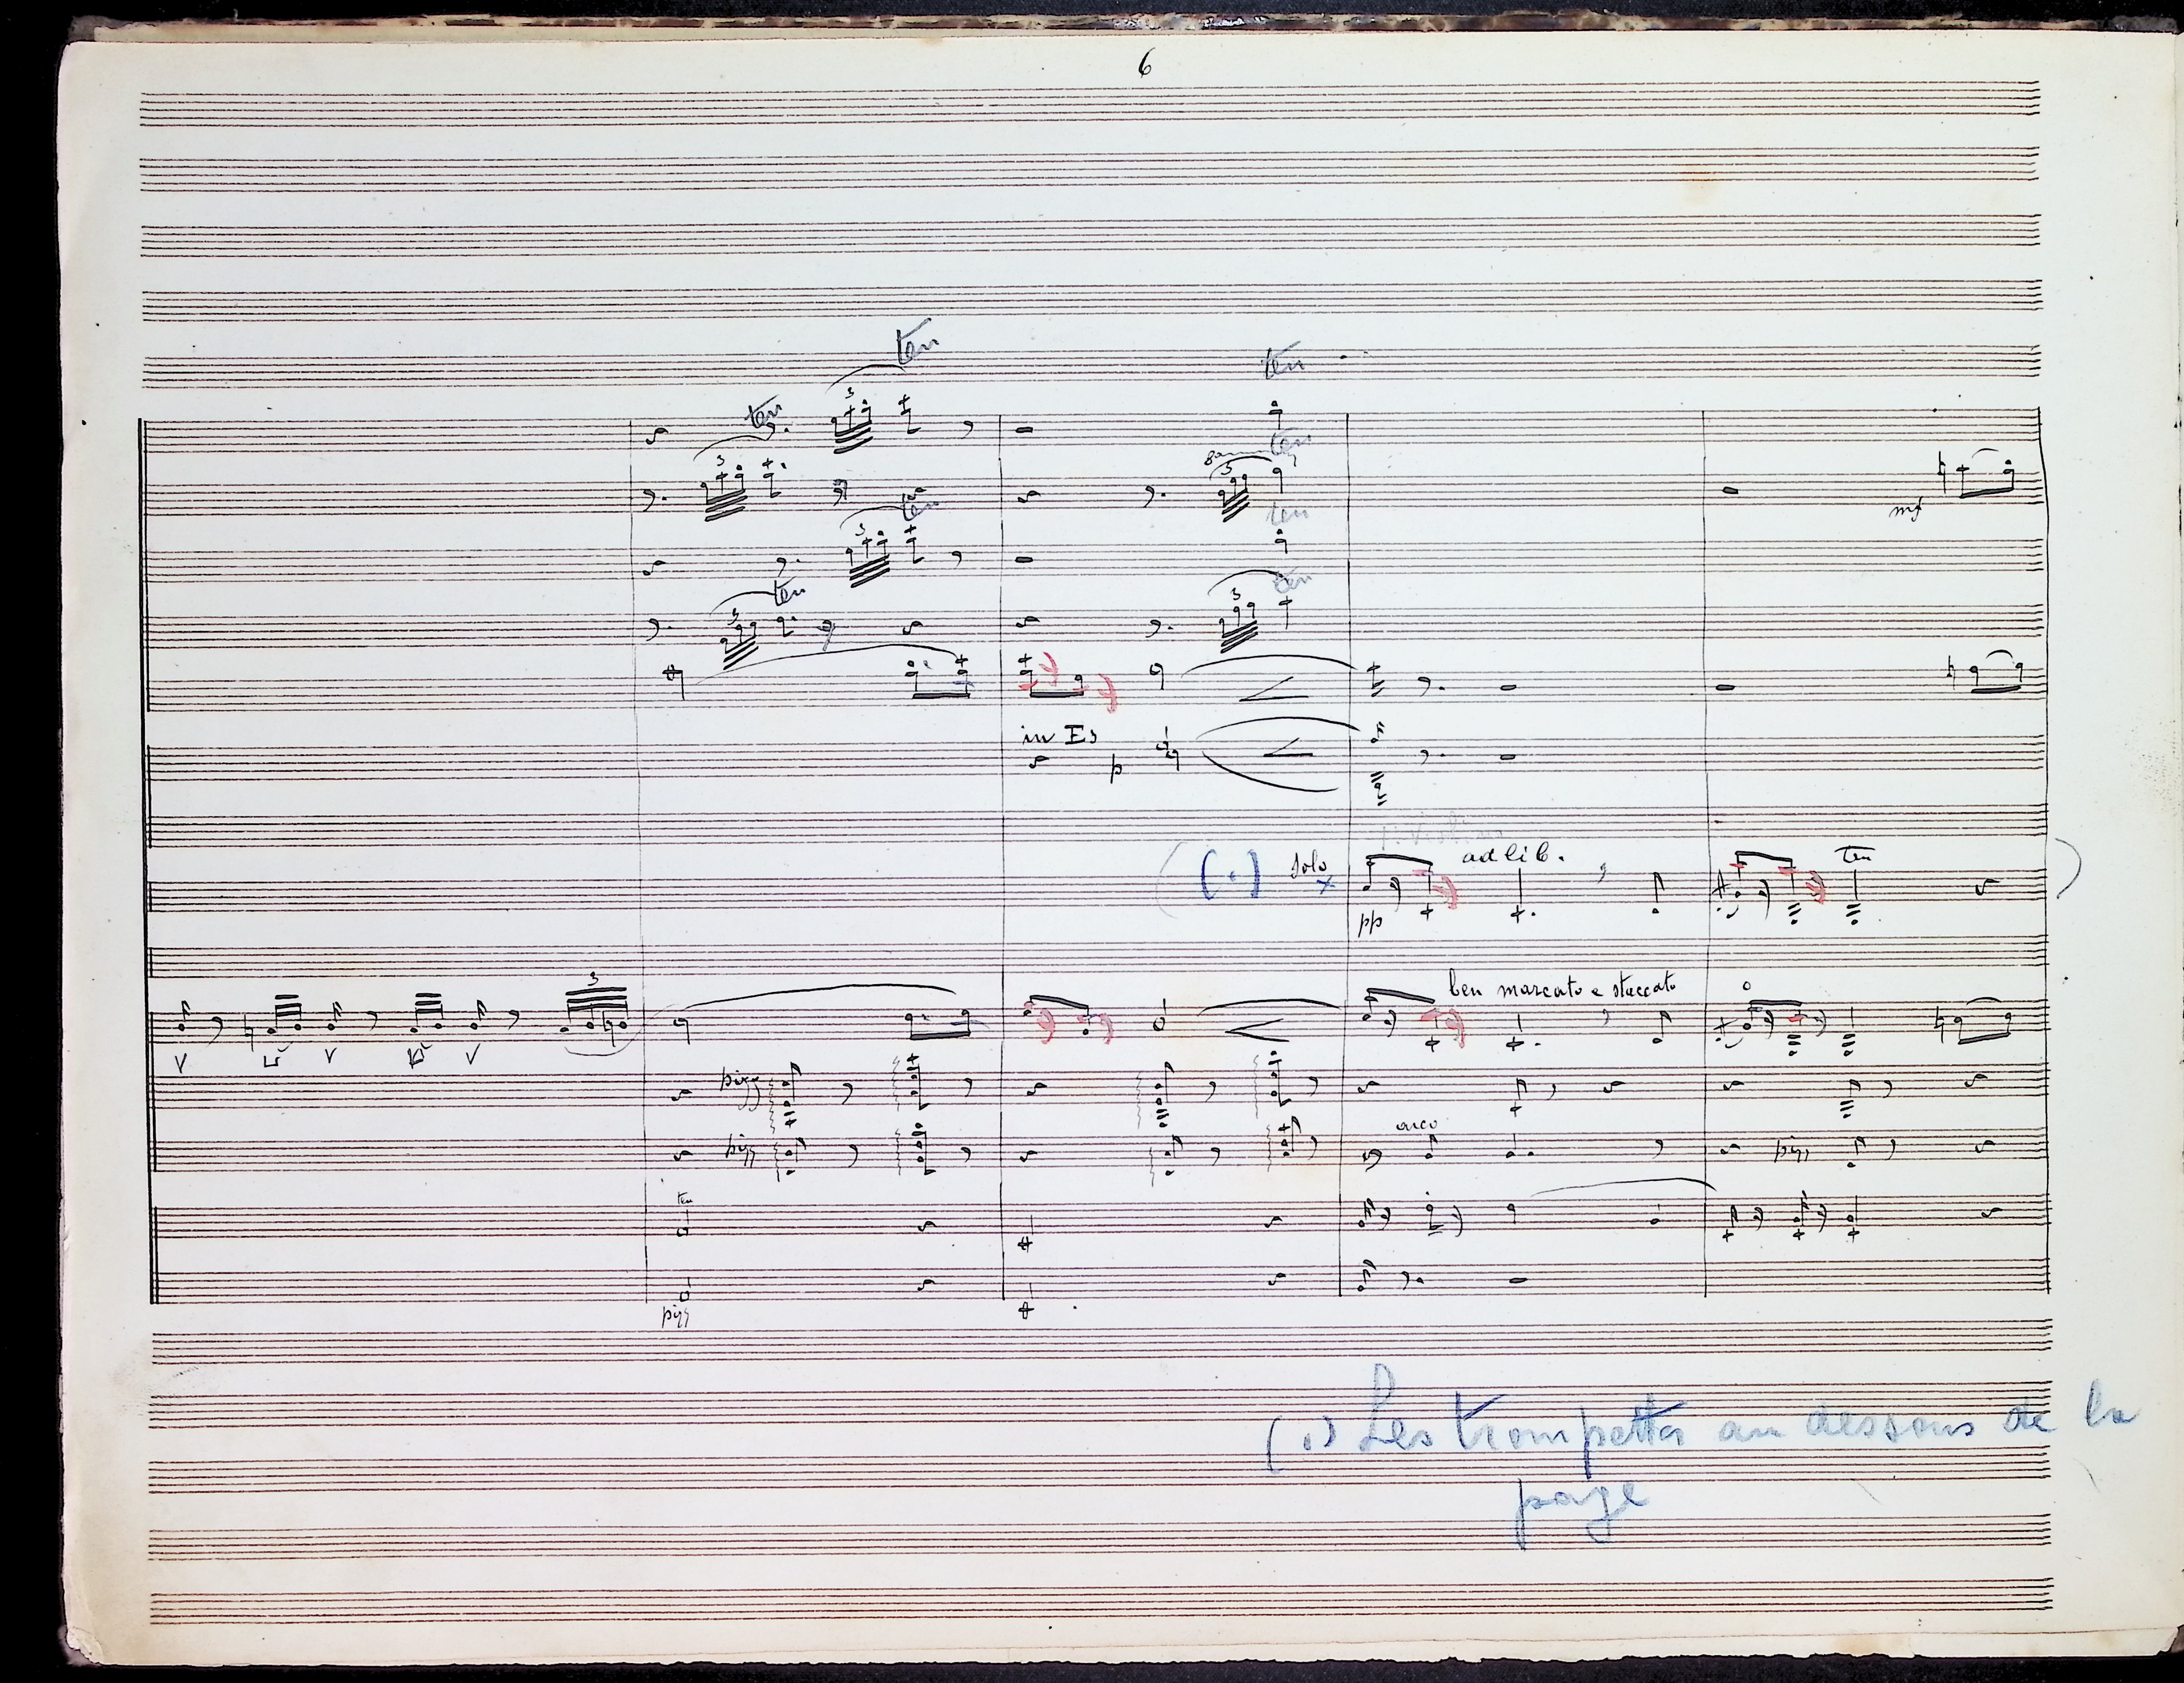 6
ten
ten
ten
3
3
8
ten
3
mf
ten
ten
3
ten
ten
3
3
in Es
p
(.) solo
ad lib.
ten
pp
3
ben marcato e staccato
o
V
V
V
pizz
arco
pizz
pizz
ten
pizz
(.) Les trompettes au dessous de la
page